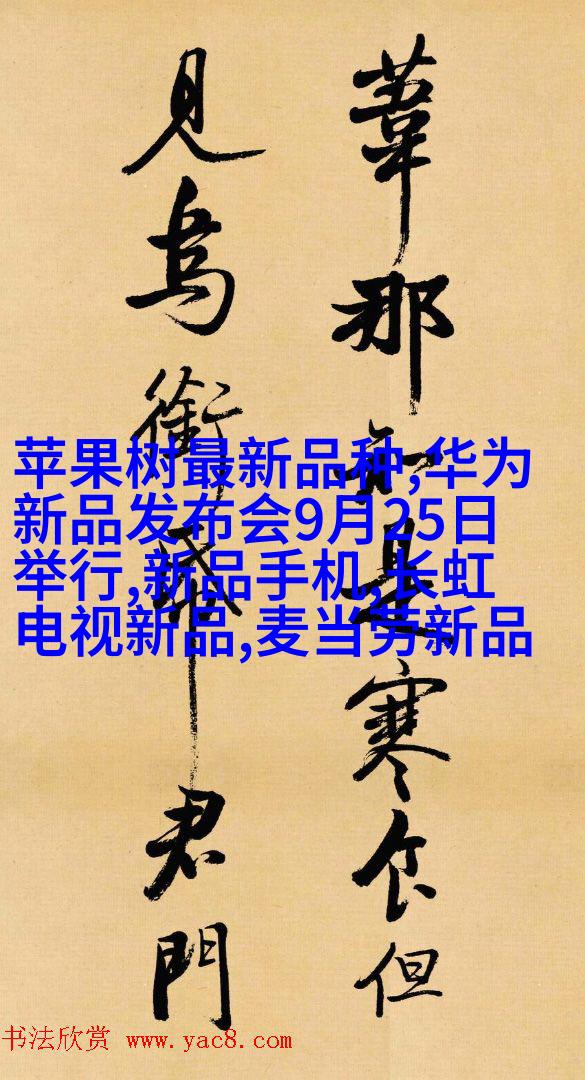 葦那知是寒食但
見烏銜帋君門
苹果树最新品种,华为
新品发布会9月25日
举行,新品手机,长虹
电视新品,麦当劳新品
书法欣赏 www.yac8.com